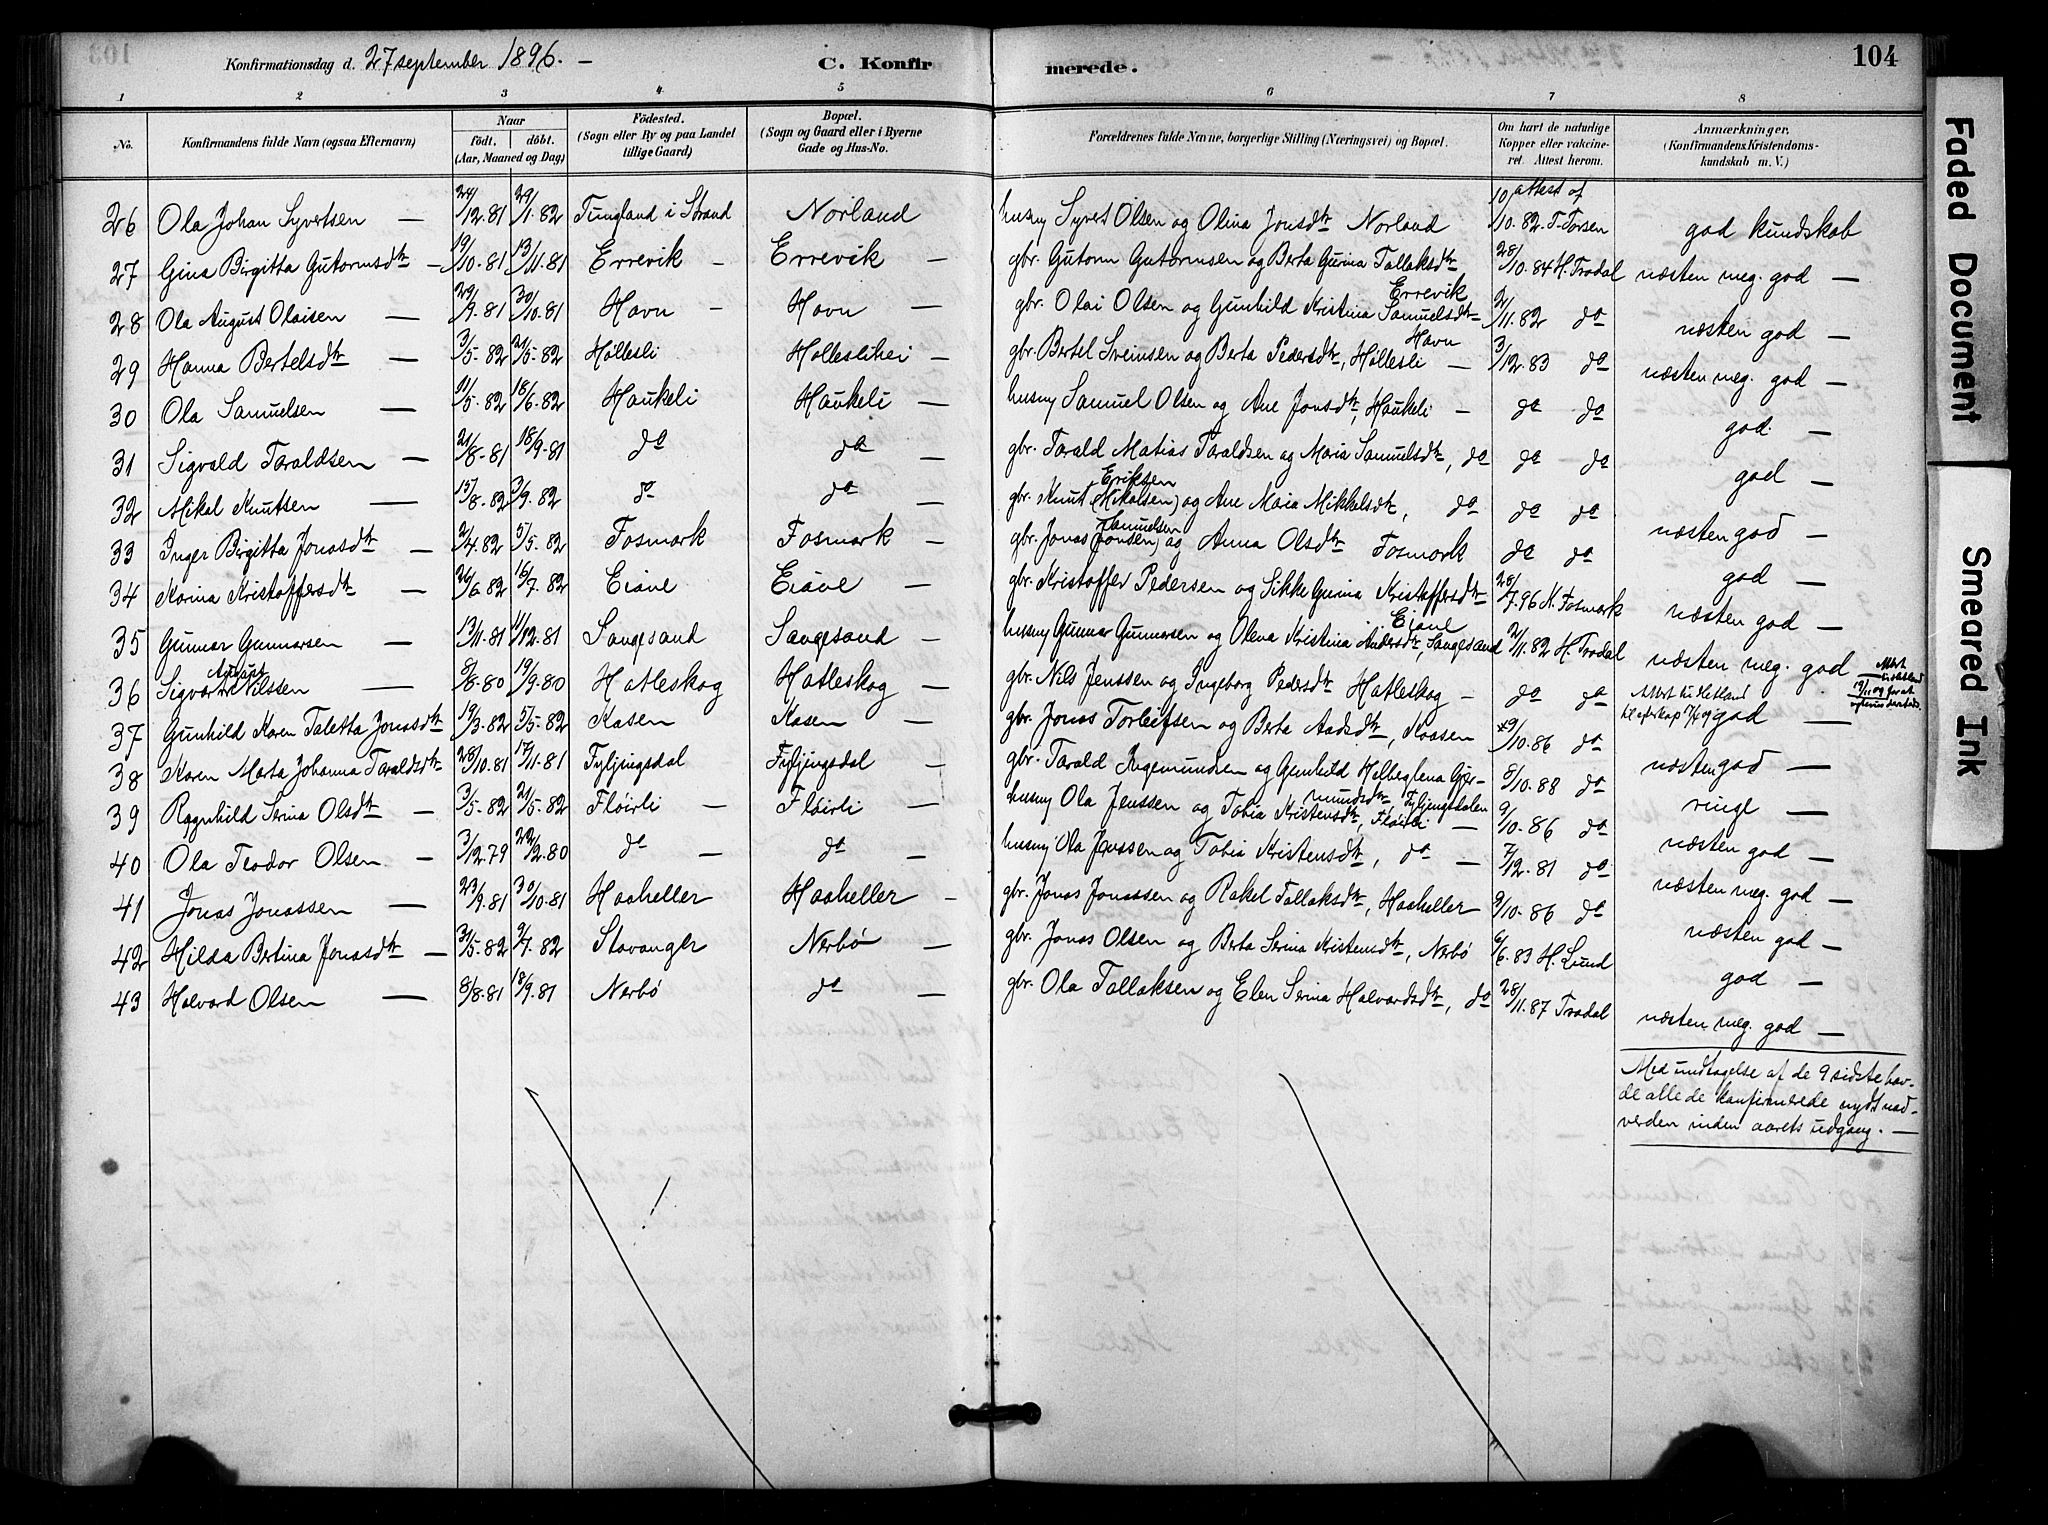 Konfirmationsdag d. 27 september 1896. – C. Konfirmerede. 104
1 2 3 4 5 6 7 8
No. Konfirmandens fulde Navn (ogsaa Efternavn) Naar født, døbt. (Aar, Maaned og Dag) Födested. (Sogn eller By og paa Landet tillige Gaard) Bopæl. (Sogn og Gaard eller i Byerne Gade og Hus-No. Forældrenes fulde Navne, borgerlige Stilling (Næringsvei) og Bopæl. Om havt de naturlige Kopper eller vakcineret. Attest herom. Anmærkninger. (Konfirmandens Kristendomskundskab m. V.)
26 Ola Johan Syvertsen — 24/12.81 29/1.82 Tungland i Strand Norland husm Syvert Olsen og Olina Jonsdtr Norland 10/10.82 attest af T. Torsen god kundskab
27 Gina Birgitta Gutormsdtr — 19/10.81 13/11.81 Errevik — Errevik — gbr. Gutorm Gutormsen og Berta Gurina Tollaksdtr Errevik 28/10.84 H. Trodal næsten meg. god —
28 Ola August Olaisen — 29/9.81 30/10.81 Havn — Havn — gbr. Olai Olsen og Gunhild Kristina Samuelsdtr Havn 2/11.82 do næsten god —
29 Hanna Bertelsdtr — 3/5.82 21/5.82 Hollesli Holleslihei — gbr. Bertel Sveinsen og Berta Pedersdtr, Hollesli — 3/12.83 do næsten meg. god —
30 Ola Samuelsen — 11/5.82 18/6.82 Haukeli Haukeli — husm Samuel Olsen og Ane Jonsdtr, Haukeli — do do god. —
31 Sigvald Taraldsen — 21/8.81 18/9.81 do do — gbr. Tarald Matias Taraldsen og Maria Samuelsdtr, do do do god —
32 Mikal Knutsen — 15/8.82 3/9.82 do do — gbr. Knut Eriksen (Mikalsen) og Ane Maria Mikkelsdtr, do do do næsten god —
33 Inger Birgitta Jonasdtr — 2/4.82 5/5.82 Fosmark Fosmark — gbr. Jonas Samuelsen (Jonsen) og Anna Olsdtr Fosmork do do god —
34 Karina Kristoffersdtr — 26/6.82 16/7.82 Eiane Eiane — gbr. Kristoffer Pedersen og Sikke Gurina Kristoffersdtr Eiane 28/7.96 K. Fosmork næsten god —
35 Gunnar Gunnarsen — 13/11.81 11/12.81 Sangesand Sangesand — husm Gunnar Gunnarsen og Olena Kristina Andersdtr, Sangesand 2/11.82 H. Trodal næsten meg. god
36 Sigvart August Nilssen — 8/8.80 19/9.80 Hatleskog Hatleskog — gbr. Nils Jenssen og Ingeborg Pedersdtr Hatleskog — do do god —
37 Gunhild Karen Taletta Jonasdtr 19/3.82 5/5.82 Kasen Kasen — gbr. Jonas Torleifsen og Berta Aadsdtr, Kaasen 9/10.86 do næsten god —
38 Karen Marta Johanna Taraldsdtr 28/10.81 17/11.81 Fyljingsdal Fyljingsdal — gbr. Tarald Ingemundsen og Gunhild Helbeglena Gjermundsdtr, Fyljingsdalen 8/10.88 do ringe —
39 Ragnhild Serina Olsdtr — 3/5.82 21/5.82 Fløirli — Fløirli — husm Ola Jenssen og Tobia Kristensdtr, Fløirli — 9/10.86 do næsten god —
40 Ola Teodor Olsen — 3/12.79 22/2.80 do — do — husm Ola Jenssen og Tobia Kristensdtr, do — 7/12.81 do næsten meg. god —
41 Jonas Jonassen — 23/9.81 30/10.81 Haaheller Haaheller — gbr. Jonas Jonassen og Rakel Tollaksdtr, Haaheller 9/10.86 do næsten god —
42 Hilda Bertina Jonasdtr — 31/5.82 9/7.82 Stavanger Nerbø — gbr. Jonas Olsen og Berta Serina Kristensdtr, Nerbø 6/6.83 H. Lund god —
43 Halvard Olsen — 8/8.81 18/9.81 Nerbø do — gbr. Ola Tollaksen og Elen Serina Halvardsdtr, do 28/11.87 Trodal næsten meg. god —
Med undtagelse af de 9 sidste hav-
de alle de konfirmerede nydt nad-
verden inden aarets udgang. —
Faded Document
Smeared Ink